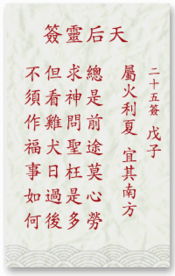 天后靈簽
二十五簽 戊子
屬火利夏 宜其南方
總是前途莫心勞
求神問聖枉是多
但看雞犬日過後
不須作福事如何